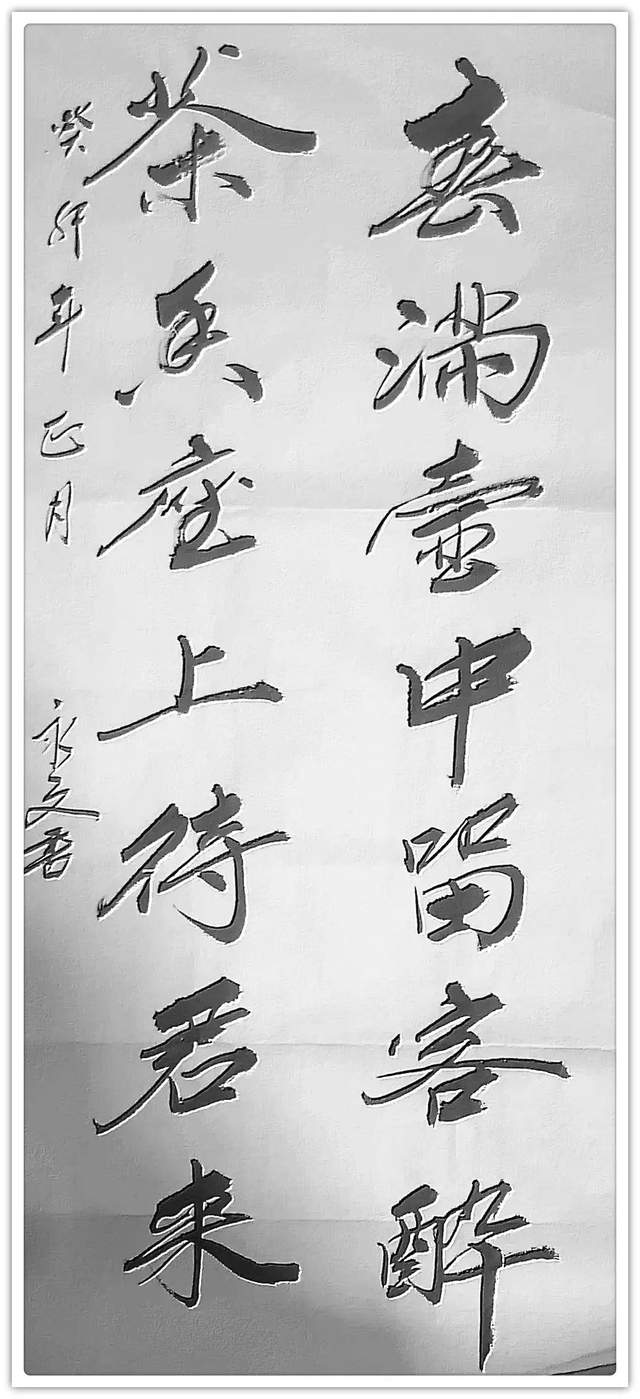 春滿壺中留客醉
茶香座上待君来
癸卯年正月
永文書